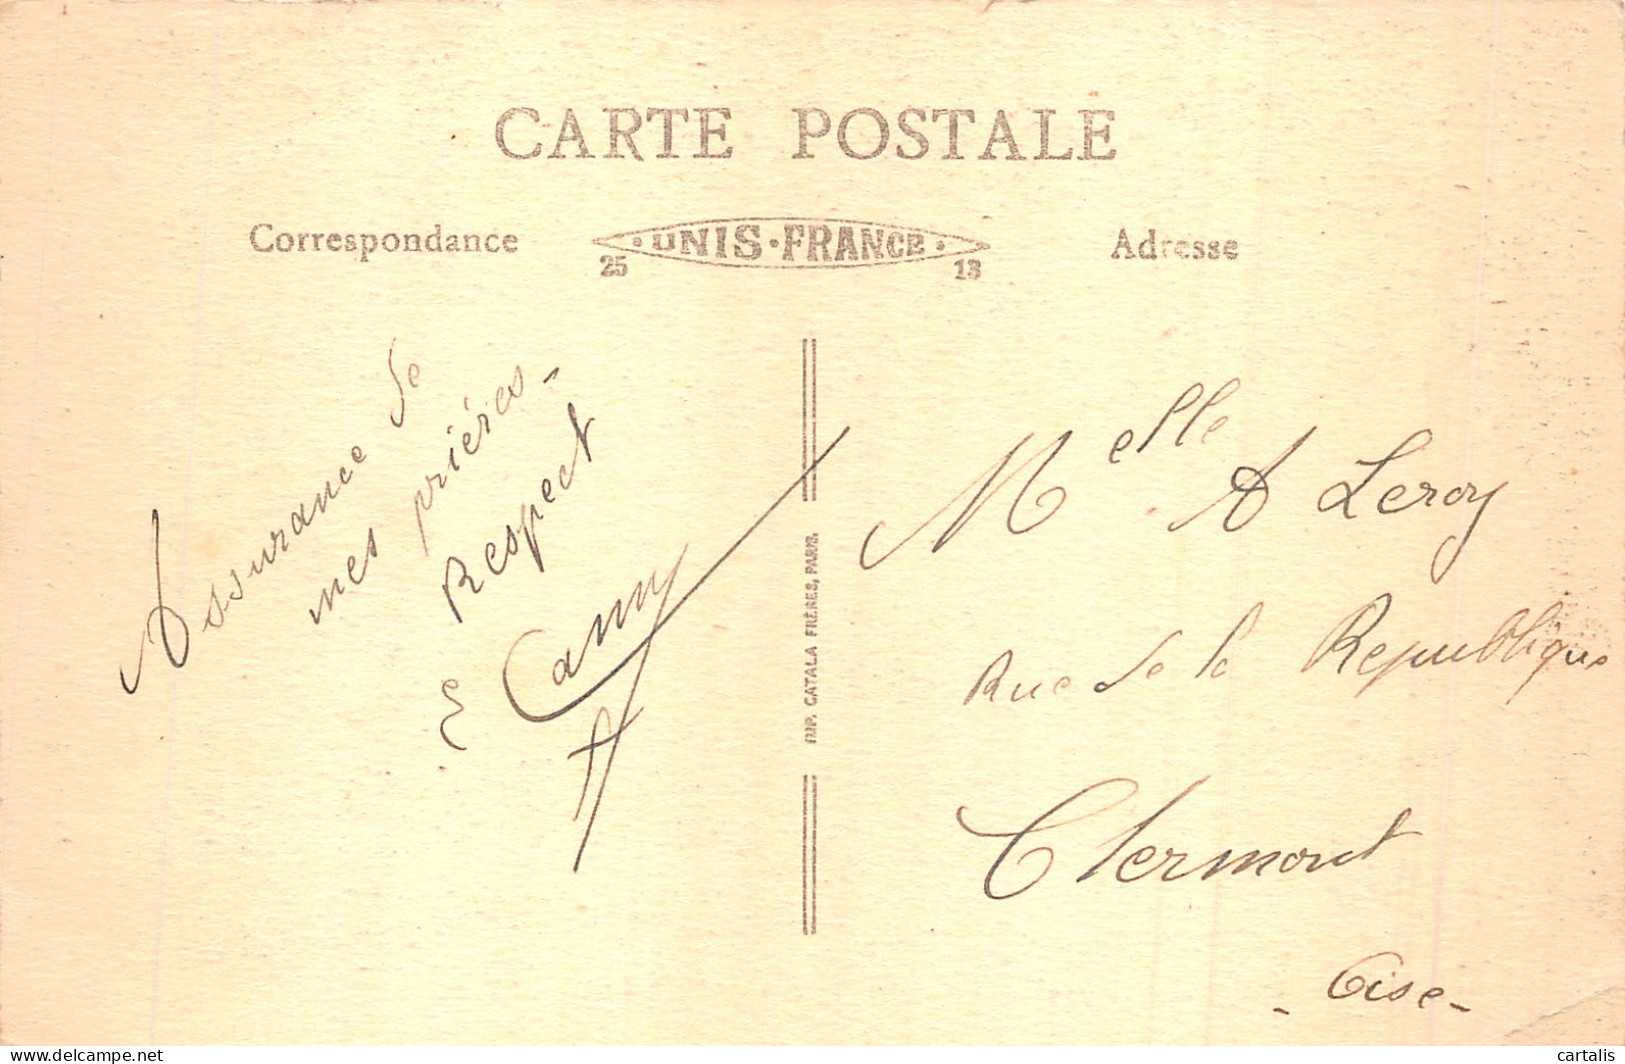 CARTE POSTALE
Correspondance
UNIS·FRANCE
25 13
Adresse
Assurance de
mes prières -
Respect
E Camy
IMP. CATALA FRÈRES, PARIS.
Melle A Leroy
Rue de la Republique
Clermont
- Oise -
cartalis
delcampe.net